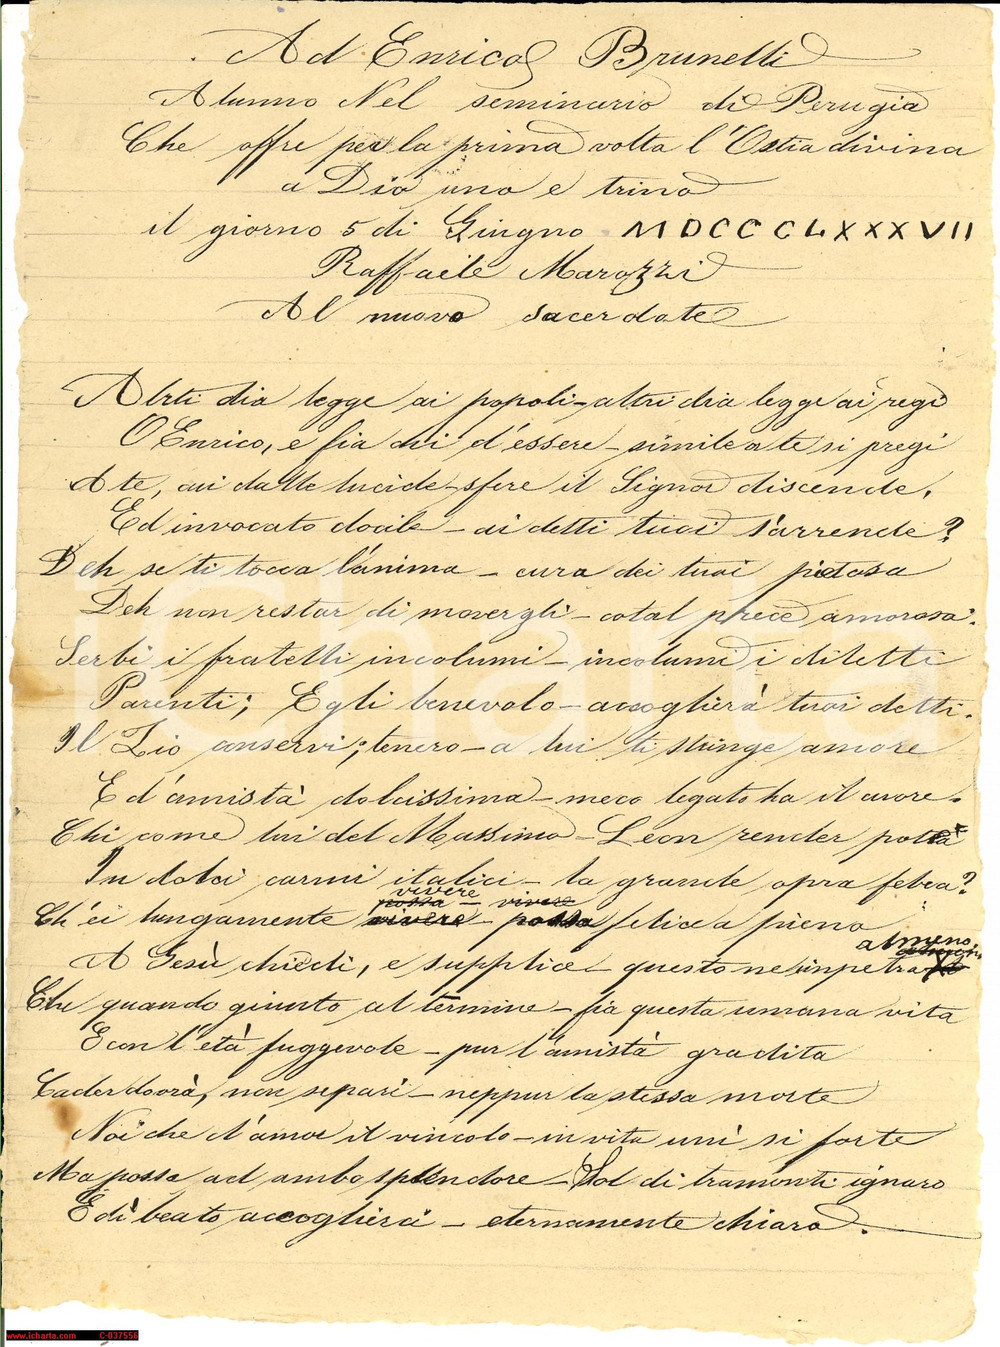 Ad Enrico Brunelli
Alunno Nel seminario di Perugia
Che offre per la prima volta l'Ostia divina
a Dio uno e trino
il giorno 5 di Giugno MDCCCCLXXXVII
Raffaele Marozzi
Al nuovo sacerdote
Altri dia legge ai popoli - altri dia legge ai regi
O Enrico, e fia chi d'essere - simile a te si pregi
A te, cui dalle lucide - sfere il Signor discende,
Ed invocato docile - ai detti tuoi s'arrende?
Deh se ti tocca l'anima - cura dei tuoi pietosa
Deh non restar di movergli - cotal prece amorosa:
Serbi i fratelli incolumi - incolumi i diletti
Parenti; Egli benevolo - accoglierà tuoi detti.
Il Zio conservi; tenero - a lui ti stringe amore
E d'amistà dolcissima - meco legato ha il cuore.
Chi come lui del Massimo - Leon render potea
In dolci carmi italici - la grande opra febea?
vivere
possa - vivere
Ch'ei lungamente vivere - possa felice a pieno
almeno
A Gesù chiedi, e supplice - questo ne impetra
Che quando giunto al termine - fia questa umana vita
E con l'età fuggevole - pur l'amistà gradita
Cader dovrà, non separi - neppur la stessa morte
Noi che d'amor il vincolo - in vita unì sì forte
Ma possa ad ambo splendore - Sol di tramonti ignaro
E dì beato accoglierci - eternamente chiaro.
www.icharta.com C-037556